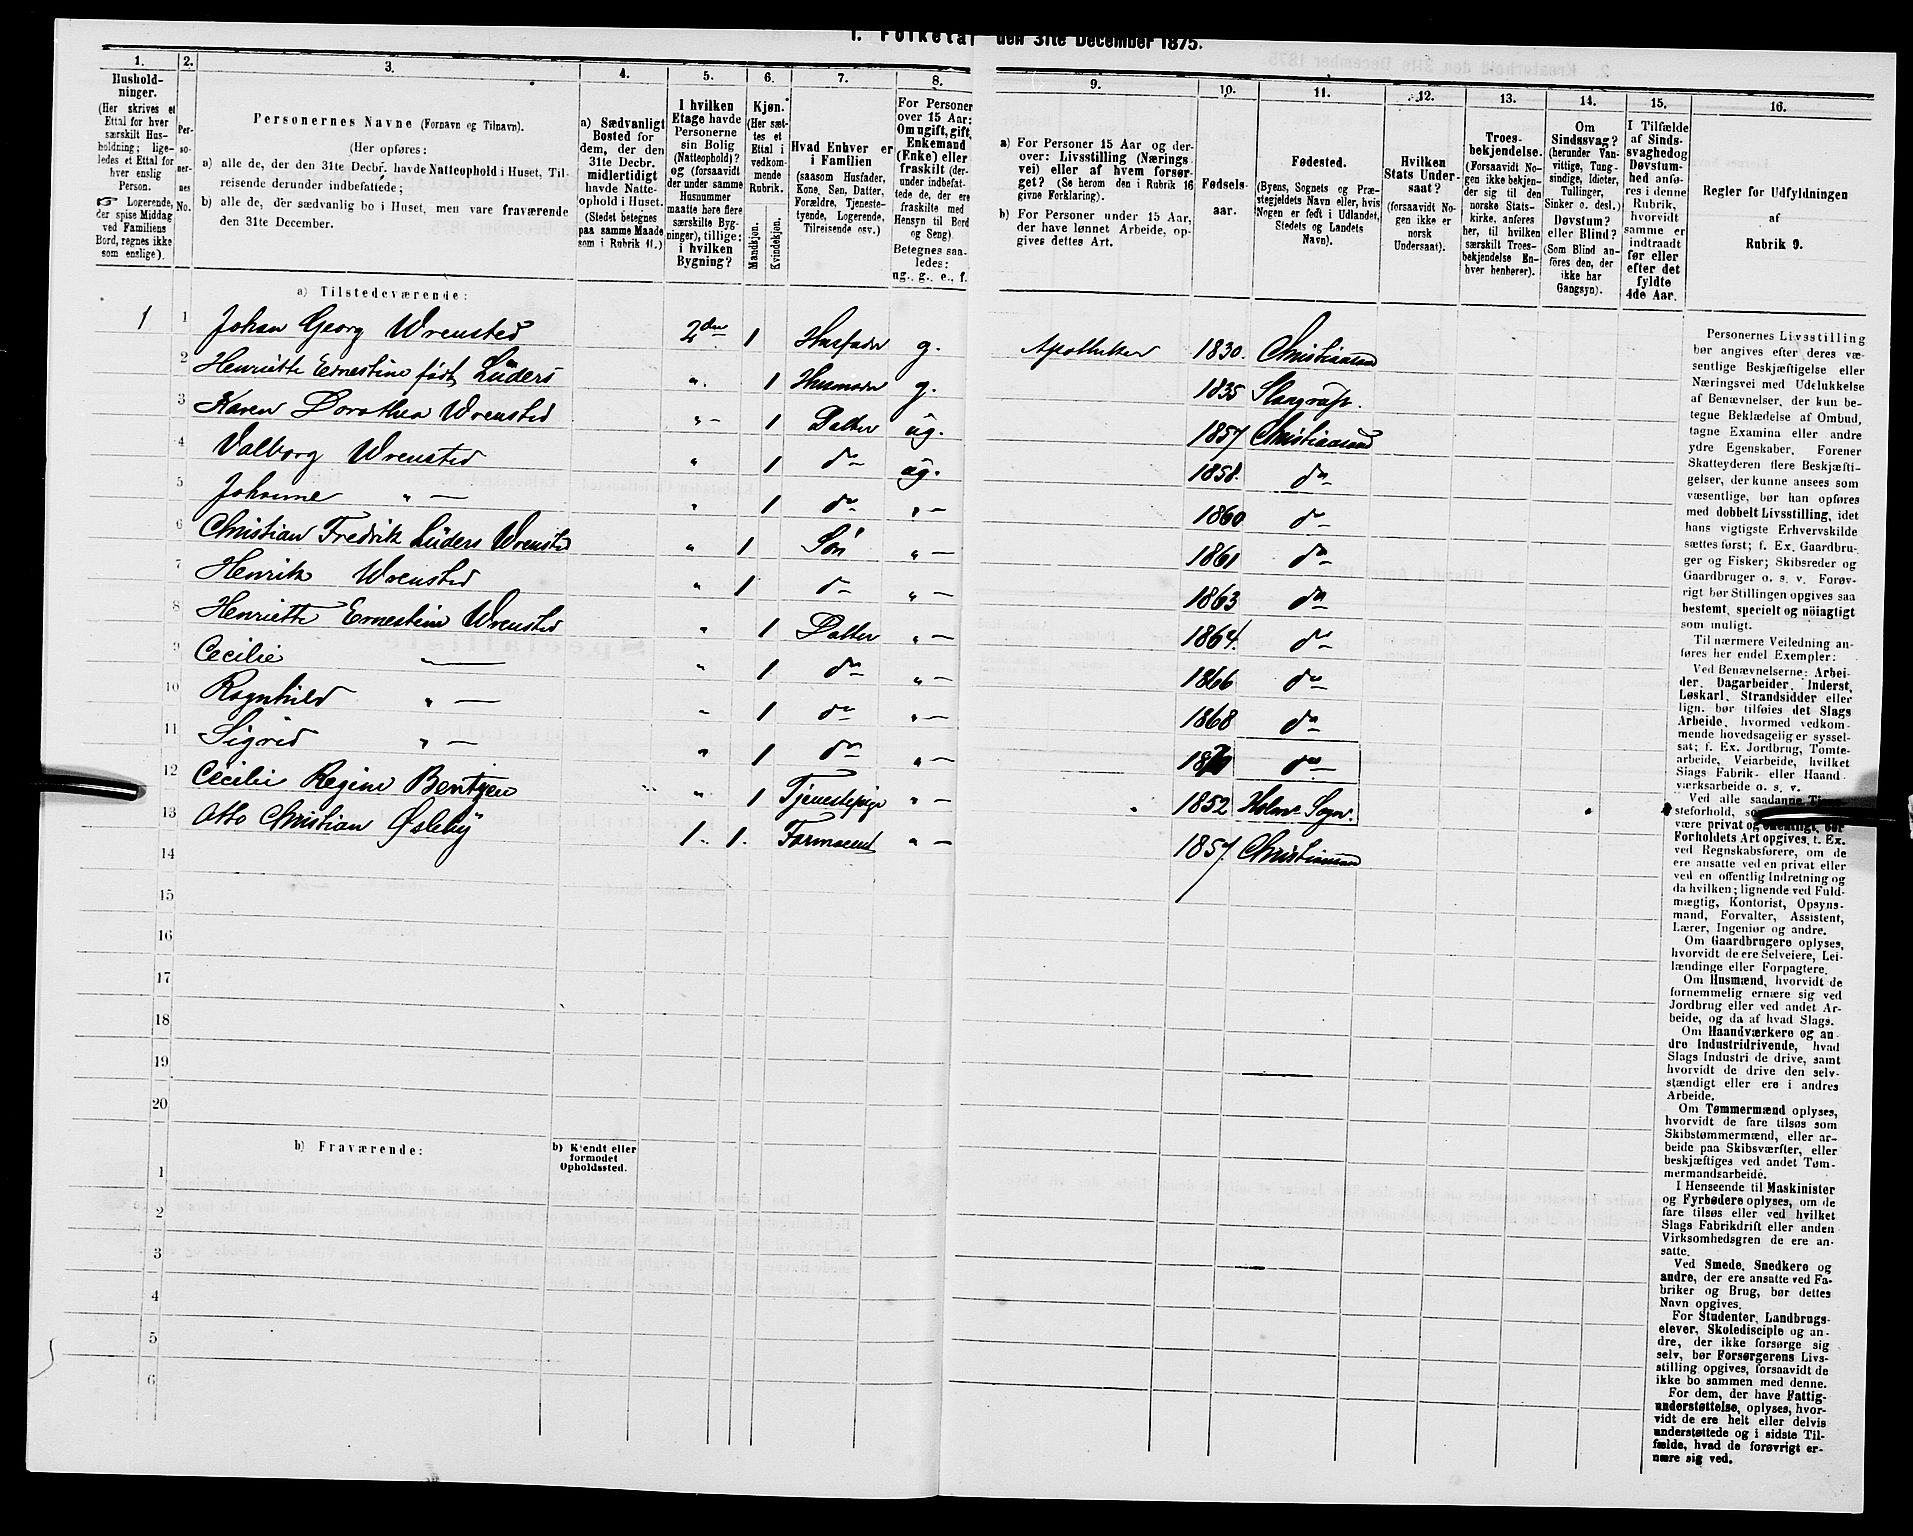 1. Folketal den 31te December 1875.
1. 2. 3. 4. 5. 6. 7. 8. 9. 10. 11. 12. 13. 14. 15. 16.
Hushold-
ninger.
(Her skrives et
Ettal for hver
særskilt Hus-
holdning; lige-
ledes et Ettal for
hver enslig
Person.
☞ Logerende,
der spise Middag
ved Familiens
Bord, regnes ikke
som enslige).
Per-
so-
ner-
nes
No.
Personernes Navne (Fornavn og Tilnavn).
(Her opføres:
a) alle de, der den 31te Decbr. havde Natteophold i Huset, Til-
reisende derunder indbefattede;
b) alle de, der sædvanlig bo i Huset, men vare fraværende
den 31te December.
a) Sædvanligt
Bosted for
dem, der den
31te Decbr.
midlertidigt
havde Natte-
ophold i Huset.
(Stedet betegnes
paa samme Maade
som i Rubrik 11.)
I hvilken
Etage havde
Personerne
sin Bolig
(Natteophold)?
og (forsaavidt
der under samme
Husnummer
maatte høre flere
særskilte Byg-
ninger), tillige:
i hvilken
Bygning?
Kjøn.
(Her sæt-
tes et
Ettal i
vedkom-
mende
Rubrik.
Mandkjøn.
Kvindekjøn.
Hvad Enhver er
i Familien
(saasom Husfader,
Kone, Søn, Datter,
Forældre, Tjeneste-
tyende, Logerende,
Tilreisende osv.)
For Personer
over 15 Aar:
Om ugift, gift,
Enkemand
(Enke) eller
fraskilt (der-
under indbefat-
tede de, der ere
fraskilte med
Hensyn til Bord
og Seng).
Betegnes saa-
ledes:
ug., g., e., f.
a) For Personer 15 Aar og der-
over: Livsstilling (Nærings
vei) eller af hvem forsør-
get? (Se herom den i Rubrik 16
givne Forklaring).
b) For Personer under 15 Aar,
der have lønnet Arbeide, op-
gives dettes Art.
Fødsels-
aar.
Fødested.
(Byens, Sognets og Præ-
stegjeldets Navn eller, hvis
Nogen er født i Udlandet,
Stedets og Landets
Navn).
Hvilken
Stats Under-
saat?
(forsaavidt No-
gen ikke er
norsk
Undersaat).
Troes-
bekjendelse.
(Forsaavidt No-
gen ikke bekjen-
der sig til den
norske Stats-
kirke, anføres
her, til hvilken
særskilt Troes-
bekjendelse En-
hver henhører).
Om
Sindssvag?
(herunder Van-
vittige, Tung-
sindige, Idioter,
Tullinger,
Sinker o. desl.)
Døvstum?
eller Blind?
(Som Blind an-
føres den, der
ikke har
Gangsyn).
I Tilfælde
af Sinds-
svaghed og
Døvstum-
hed anfø-
res i denne
Rubrik,
hvorvidt
samme er
indtraadt
før eller
efter det
fyldte
4de Aar.
Regler for Udfyldningen
af
Rubrik 9.
a) Tilstedeværende:
1 1 Johan Georg Wrensted 2den 1 Husfader g. Apotheker 1830. Christiansand
2 Henriette Ernestine født Lüders " 1 Husmoder g. 1835
3 Karen Dorothea Wrensted " 1 Datter ug. 1857 Christiansand
4 Valborg Wrensted " 1 do ug. 1858. do
5 Johanne " " 1 do " 1860 do
6 Christian Fredrik Lüders Wrensted " 1 Søn " 1861 do
7 Henrik Wrensted " 1 do " 1863 do
8 Henriette Ernestine Wrensted " 1 Datter " 1864. do
9 Cecilie " " 1 do " 1866 do
10 Ragnhild " " 1 do " 1868 do
11 Sigrid " " 1 do " 1870 do
12 Cecilie Regine Bentzen " 1 Tjenestepige " 1852. Holme Sogn.
13 Otto Christian Øsleby 1. 1. " 1857. Christiansand
14
15
16
17
18
19
20
b) Fraværende: b) Kjendt eller
formodet
Opholdssted.
1
2
3
4
5
6
Personernes Livsstilling
bør angives efter deres væ-
sentlige Beskjæftigelse eller
Næringsvei med Udelukkelse
af Benævnelser, der kun be-
tegne Beklædelse af Ombud,
tagne Examina eller andre
ydre Egenskaber. Forener
Skatteyderen flere Beskjæfti-
gelser, der kunne ansees som
væsentlige, bør han opføres
med dobbelt Livsstilling, idet
hans vigtigste Erhvervskilde
sættes først; f. Ex. Gaardbru-
ger og Fisker; Skibsreder og
Gaardbruger o. s. v. Forøv-
rigt bør Stillingen opgives saa
bestemt, specielt og nöiagtigt
som muligt.
Til nærmere Veiledning an-
føres her endel Exempler:
Ved Benævnelserne: Arbei-
der, Dagarbeider, Inderst,
Løskarl, Strandsidder eller
lign. bør tilføies det Slags
Arbeide, hvormed vedkom-
mende hovedsagelig er syssel-
sat; f. Ex. Jordbrug, Tomte-
arbeide, Veiarbeide, hvilket
Slags Fabrik- eller Haand
værksarbeide o. s. v.
Ved alle saadanne
steforhold,
være privat og
Forholdets Art opgives, f. Ex.
ved Regnskabsførere, om de
ere ansatte ved en privat eller
ved en offentlig Indretning og
da hvilken; lignende ved Fuld-
mægtig, Kontorist, Opsyns-
mand, Forvalter, Assistent,
Lærer, Ingeniør og andre.
Om Gaardbrugere oplyses,
hvorvidt de ere Selveiere, Lei-
lændinge eller Forpagtere.
Om Husmænd, hvorvidt de
fornemmelig ernære sig ved
Jordbrug eller ved andet Ar-
beide, og da af hvad Slags.
Om Haandværkere og an-
dre Industridrivende, hvad
Slags Industri de drive, samt
hvorvidt de drive den selv-
stændigt eller ere i andres
Arbeide.
Om Tømmermænd oplyses,
hvorvidt de fare tilsøs som
Skibstømmermænd, eller ar-
beide paa Skibsværfter, eller
beskjæftiges ved andet Tøm-
mermandsarbeide.
I Henseende til Maskinister
og Fyrbødere oplyses, om de
fare tilsøs eller ved hvilket
Slags Fabrikdrift eller anden
Virksomhedsgren de ere an-
satte.
Ved Smede, Snedkere og
andre, der ere ansatte ved Fa-
briker og Brug, bør dettes
Navn opgives.
For Studenter, Landbrugs-
elever, Skoledisciple og an-
dre, der ikke forsørge sig
selv, bør Forsørgerens Livs-
stilling opgives, forsaavidt de
ikke bo sammen med denne.
For dem, der have Fattig-
understøttelse, oplyses, hvor-
vidt de ere helt eller delvis
understøttede og i sidste Til-
fælde, hvad de forøvrigt er-
nære sig ved.